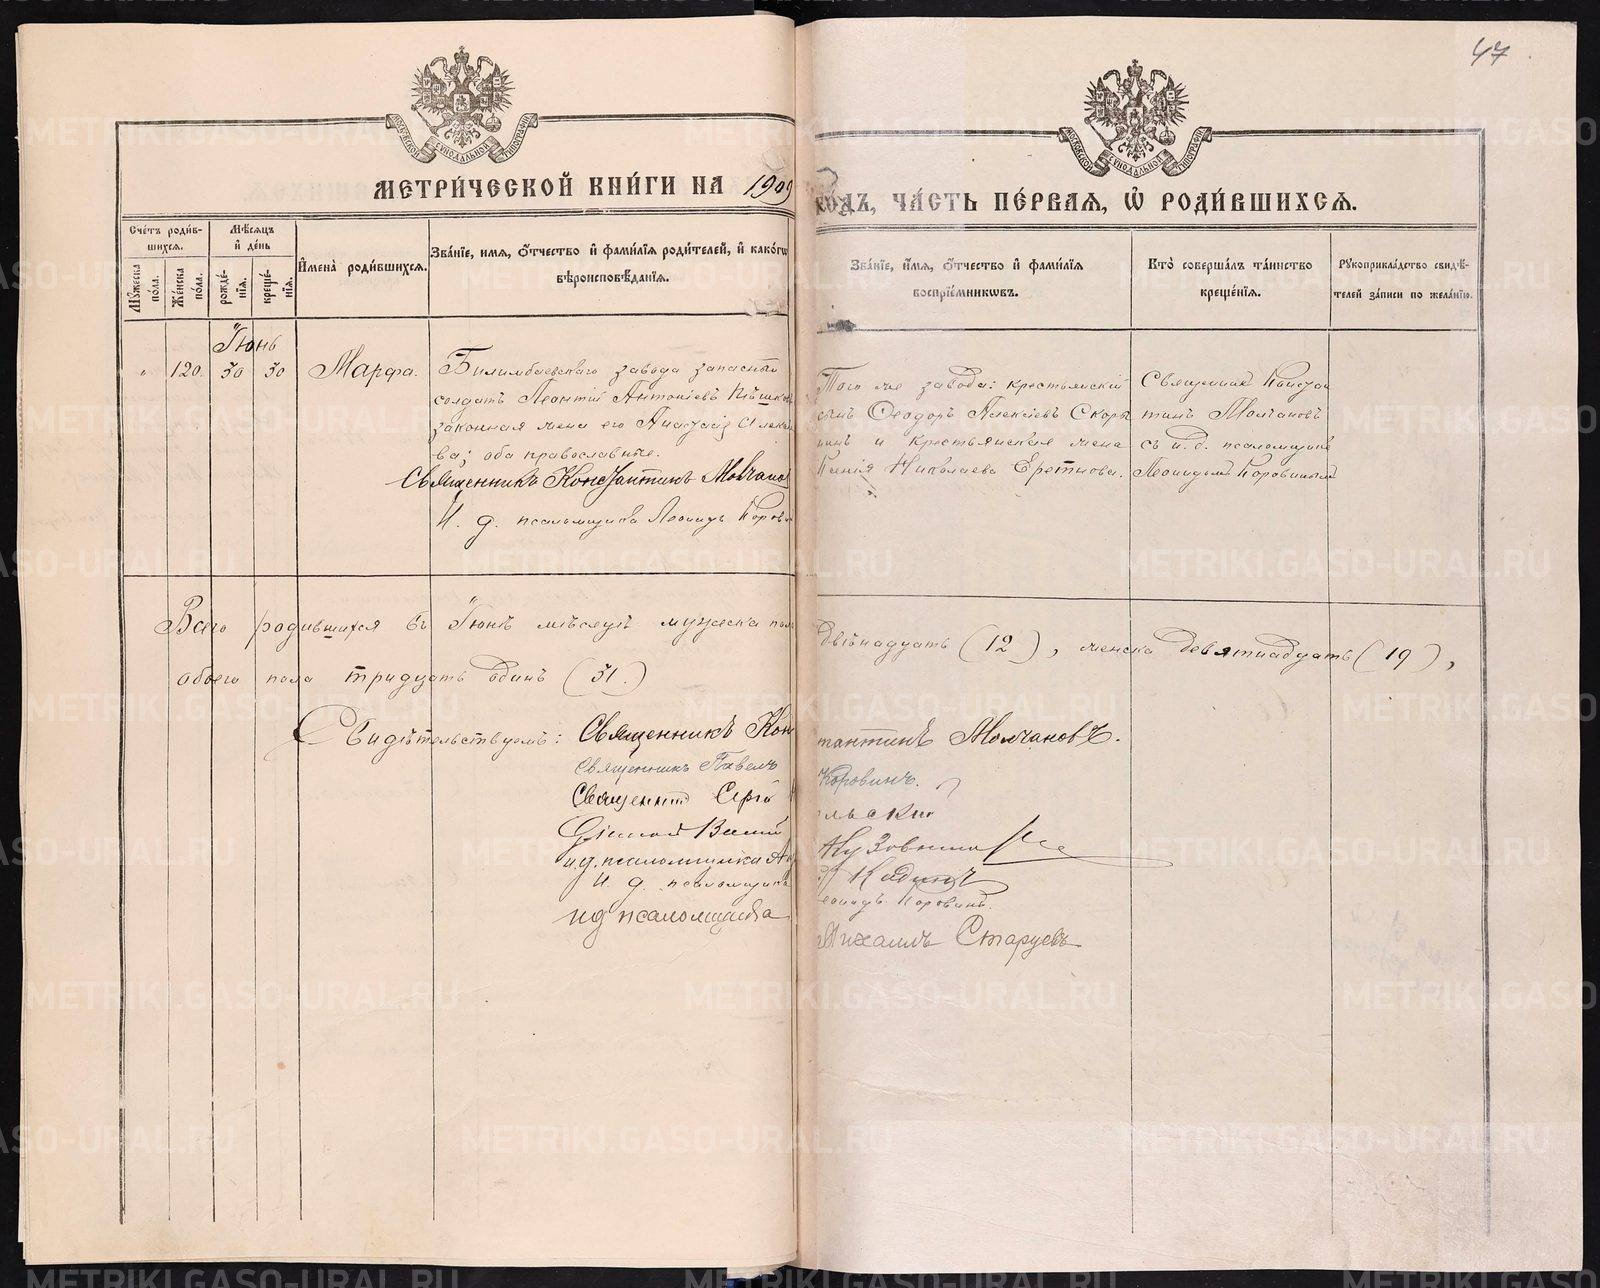 47
МОСКОВСКОЙ СѴНОДАЛЬНОЙ ТИПОГРАФІИ
МОСКОВСКОЙ СѴНОДАЛЬНОЙ ТИПОГРАФІИ
МЕТРИ́ЧЕСКОЙ КНИ́ГИ НА 1909
ГО́ДЪ, ЧА́СТЬ ПЕ́РВАЯ, Ѽ РОДИ́ВШИХСѦ.
Сче́тъ роди́в-
шихсѧ.
Мꙋ́жеска по́ла.
Же́нска по́ла.
Мѣ́сѧцъ и́ де́нь
рожде́-
нїѧ.
креще́-
нїѧ.
И҆мена̀ роди́вшихсѧ.
Зва́нїе, и́мѧ, ѻ҆́тчество и҆ фами́лїѧ роди́телей, и҆ како́гѡ
вѣроисповѣ́данїѧ.
Зва́нїе, и҆́мѧ, ѻ҆́тчество и҆ фами́лїѧ
воспрїе́мникѡвъ.
Кто̀ соверша́лъ та́инство
креще́нїѧ.
Рꙋкоприкла́дство свидѣ́-
телей за́писи по жела́нїю.
Іюнь
" 120. 30 30 Марфа.
Билимбаевскаго завода запасный
солдатъ Леонтій Антоніевъ
законная жена его Анастасія
ва; оба православные.
Священникъ Константинъ Молчано
И. д. псаломщика Леонидъ Коров
Того же завода: крестьянскій
сынъ Ѳеодоръ Алексіевъ Скоры
нинъ и крестьянская жена
Ксенія Николаева
Священникъ Констан
тинъ Молчановъ
съ и. д. псаломщика
Леонидомъ Коровинымъ
Всего родившихся въ Іюнѣ мѣсяцѣ мужеска пола
двѣнадцать (12), женска девятнадцать (19),
обоего пола тридцать одинъ (31.)
Свидѣтельствуемъ: Священникъ Кон
стантинъ Молчановъ.
Священникъ Павелъ
Коровинъ.
Священникъ Сергій
льскій
Діаконъ
и.д. псаломщика
Кадинъ
И. д. псаломщика
Леонидъ Коровинъ.
ид псаломщика
Михаилъ Старцевъ
METRIKI.GASO-URAL.RU